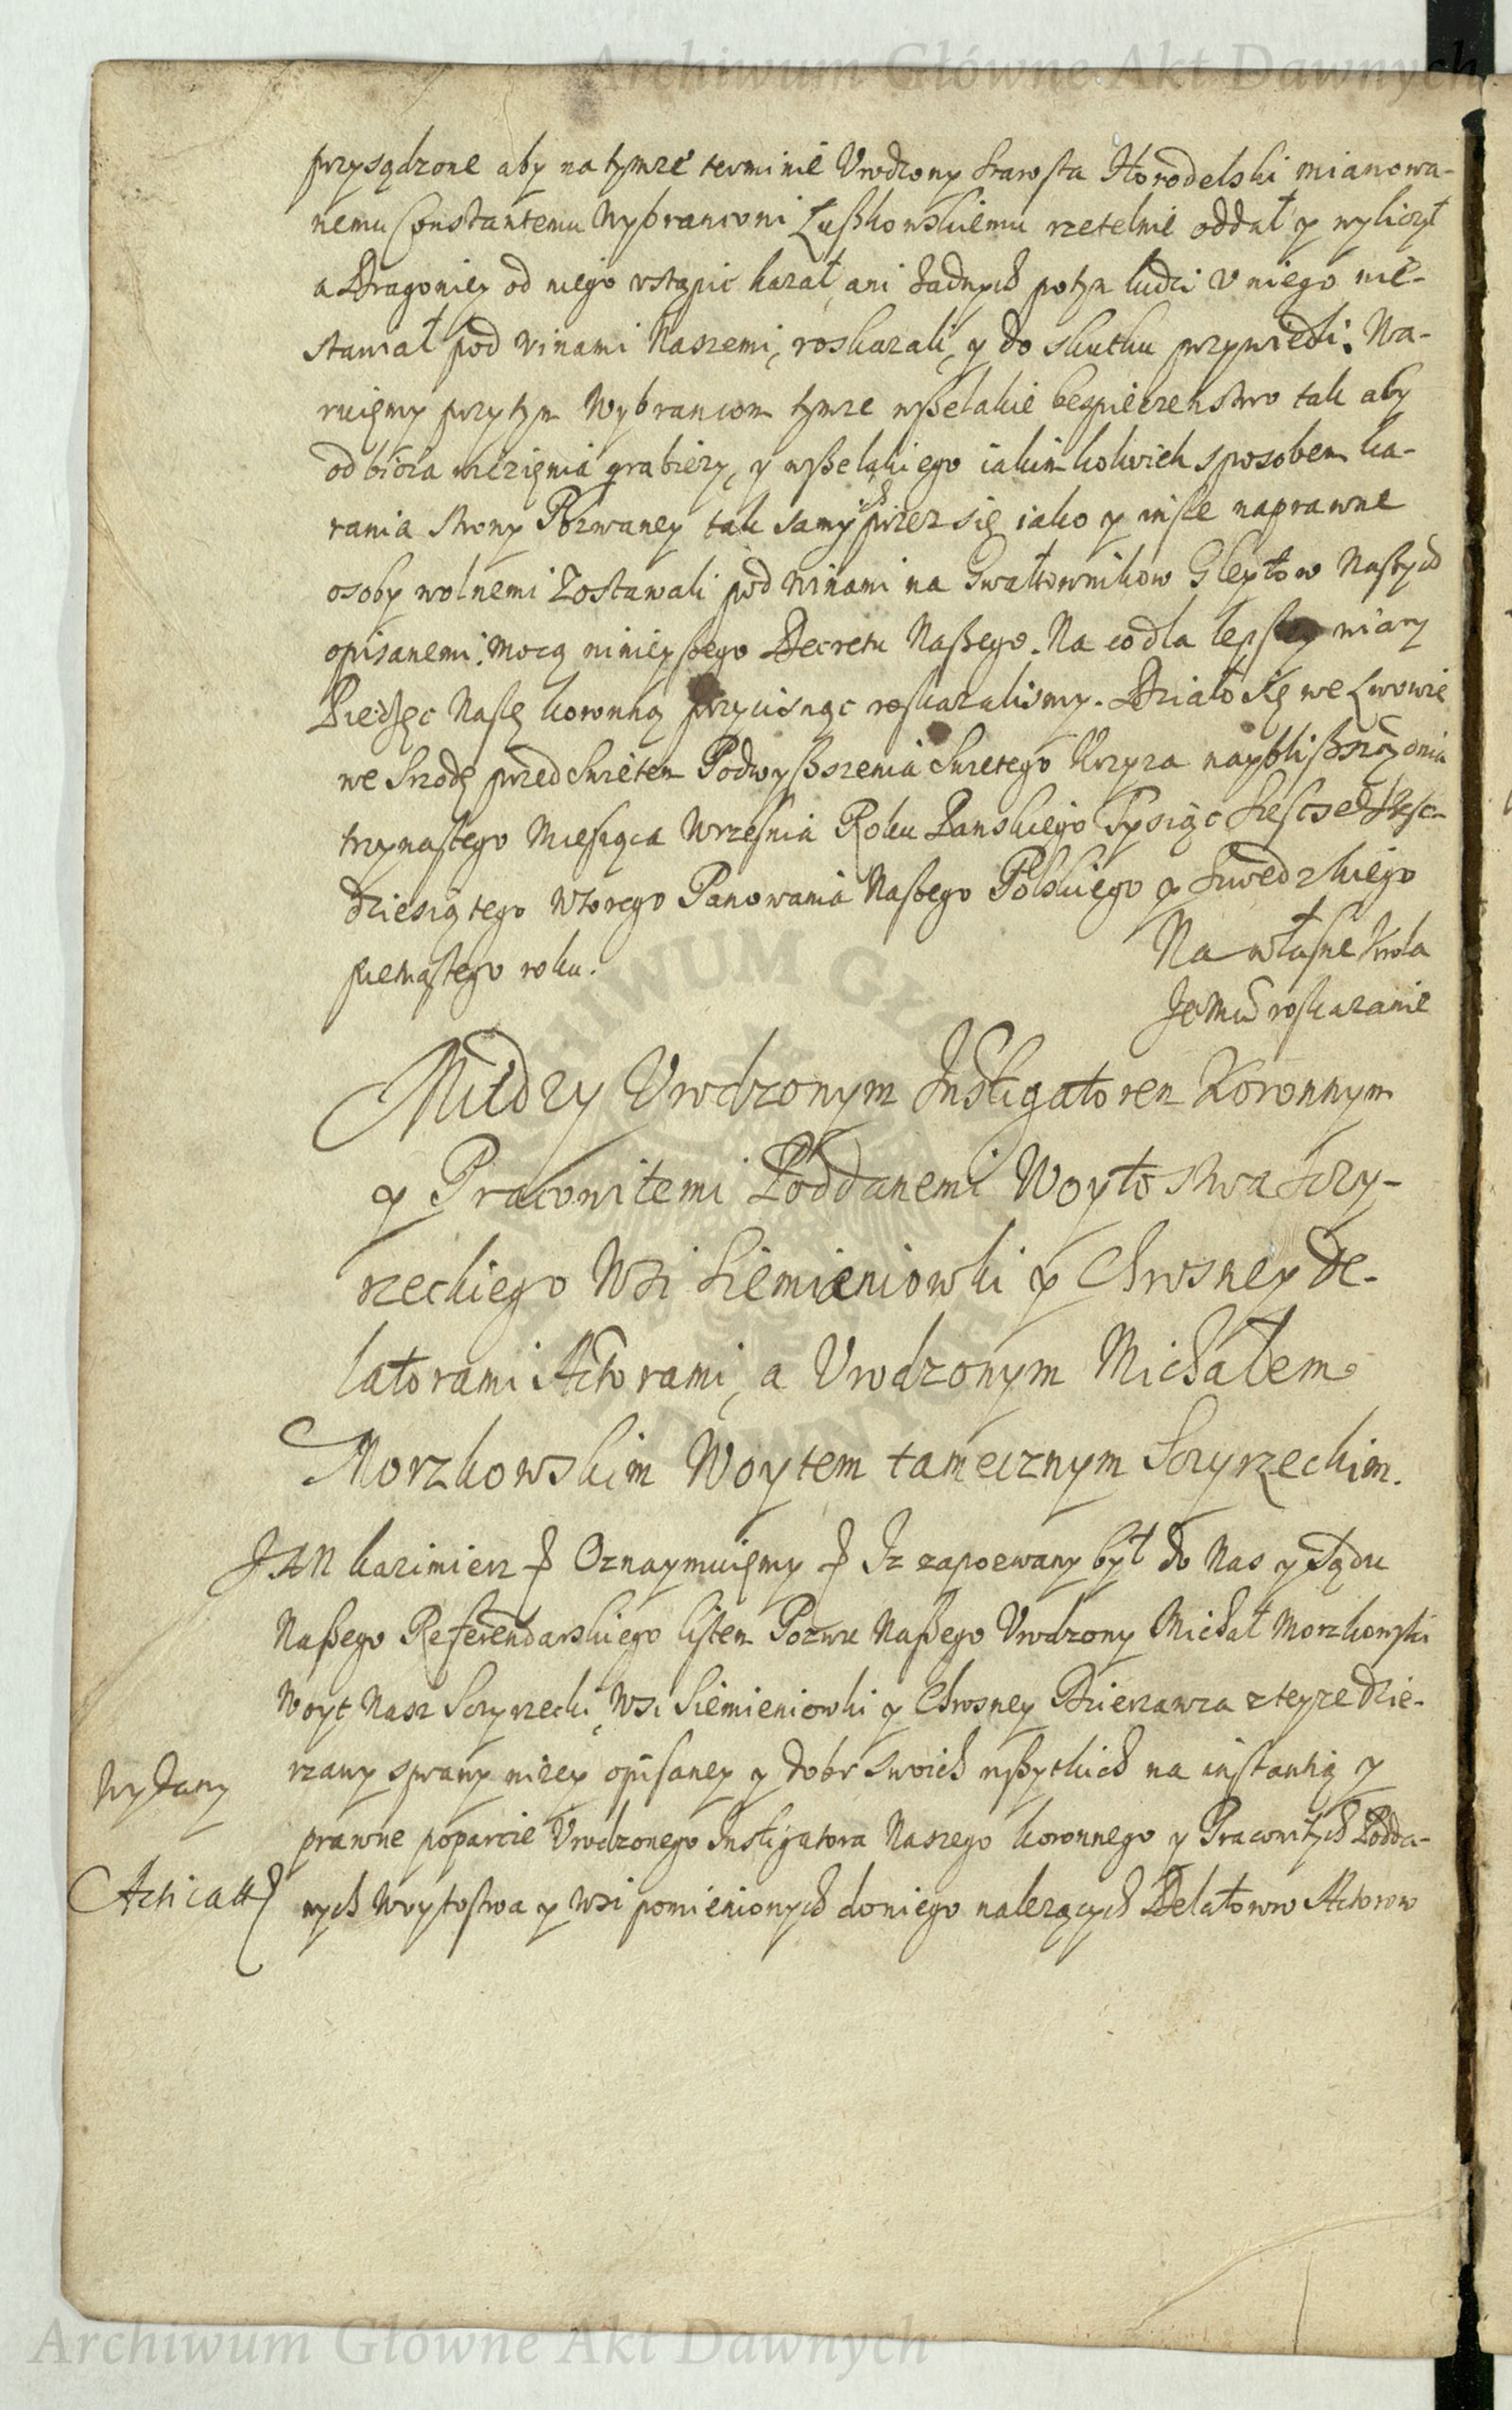 Archiwum Główne Akt Dawnych
przysądzone aby na tymze terminie Vrodzony Starosta Horodelski mianowa-
nemu Constantemu Wybrancowi Lußkowskiemu rzetelnie oddał y wyliczył
a Dragoniey od niego vstąpic kazał, ani żadnych potym ludzi v niego nie-
stawiał pod vinami Naszemi, roskazali, y do skutku przywiedli. Wa-
ruięmy przytym Wybrancom tymze wßelakie bespieczenstwo tak aby
od bicia więzięnia grabiezy, y wßelakiego iakimkolwiek sposobem ka-
rania strony Pozwaney tak samych przez się iako y insze naprawne
osoby wolnemi Zostawali pod winami na Gwałtownikow Gleytow Naßych
opisanemi. Mocą ninieyßego Decretu Naßego. Na co dla lepszey wiary
Pieczęc Naszę koronną przycisnąc roskazalismy. Działo się we Lwowie
we Srzodę przed Swiętem Podwyßszenia Swiętego Krzyza nayblißszą dnia
trzynastego Miesiąca Wrzesnia Roku Panskiego Tysiąc Szescset szesc-
dziesiątego wtorego Panowania Naßego Polskiego y Szwedzkiego
pietnastego roku.
Na własne Krola
Je Mci roskazanie
Miedzy Vrodzonym Instigatorem Koronnym
y Pracowitemi Poddanemi Woytostwa Sczy-
rzeckiego Wsi Siemieniowki y Chrosney De-
latorami Actorami, a Vrodzonym Michałem
Morzkowskim Woytem tamecznym Sczyrzeckim.
JAN Kazimierz Oznaymuięmy Iz zapozwany był do Nas y Sądu
Naßego Referendarskiego listem Pozwu Naßego Vrodzony Michał Morzkowski
Woyt Nasz Sczyrzecki, Wsi Siemieniowki y Chrosney Dzierzawca z teyze dzie-
rzawy sprawy nizey opisaney y dobr swoich wßytkich na instantią y
prawne poparcie Vrodzonego Instigatora Naszego koronnego y Pracowitych Podda-
nych Woytostwa y Wsi pomienionych do niego nalezących Delatorow Actorow
Wydany
Acticatt
Archiwum Główne Akt Dawnych